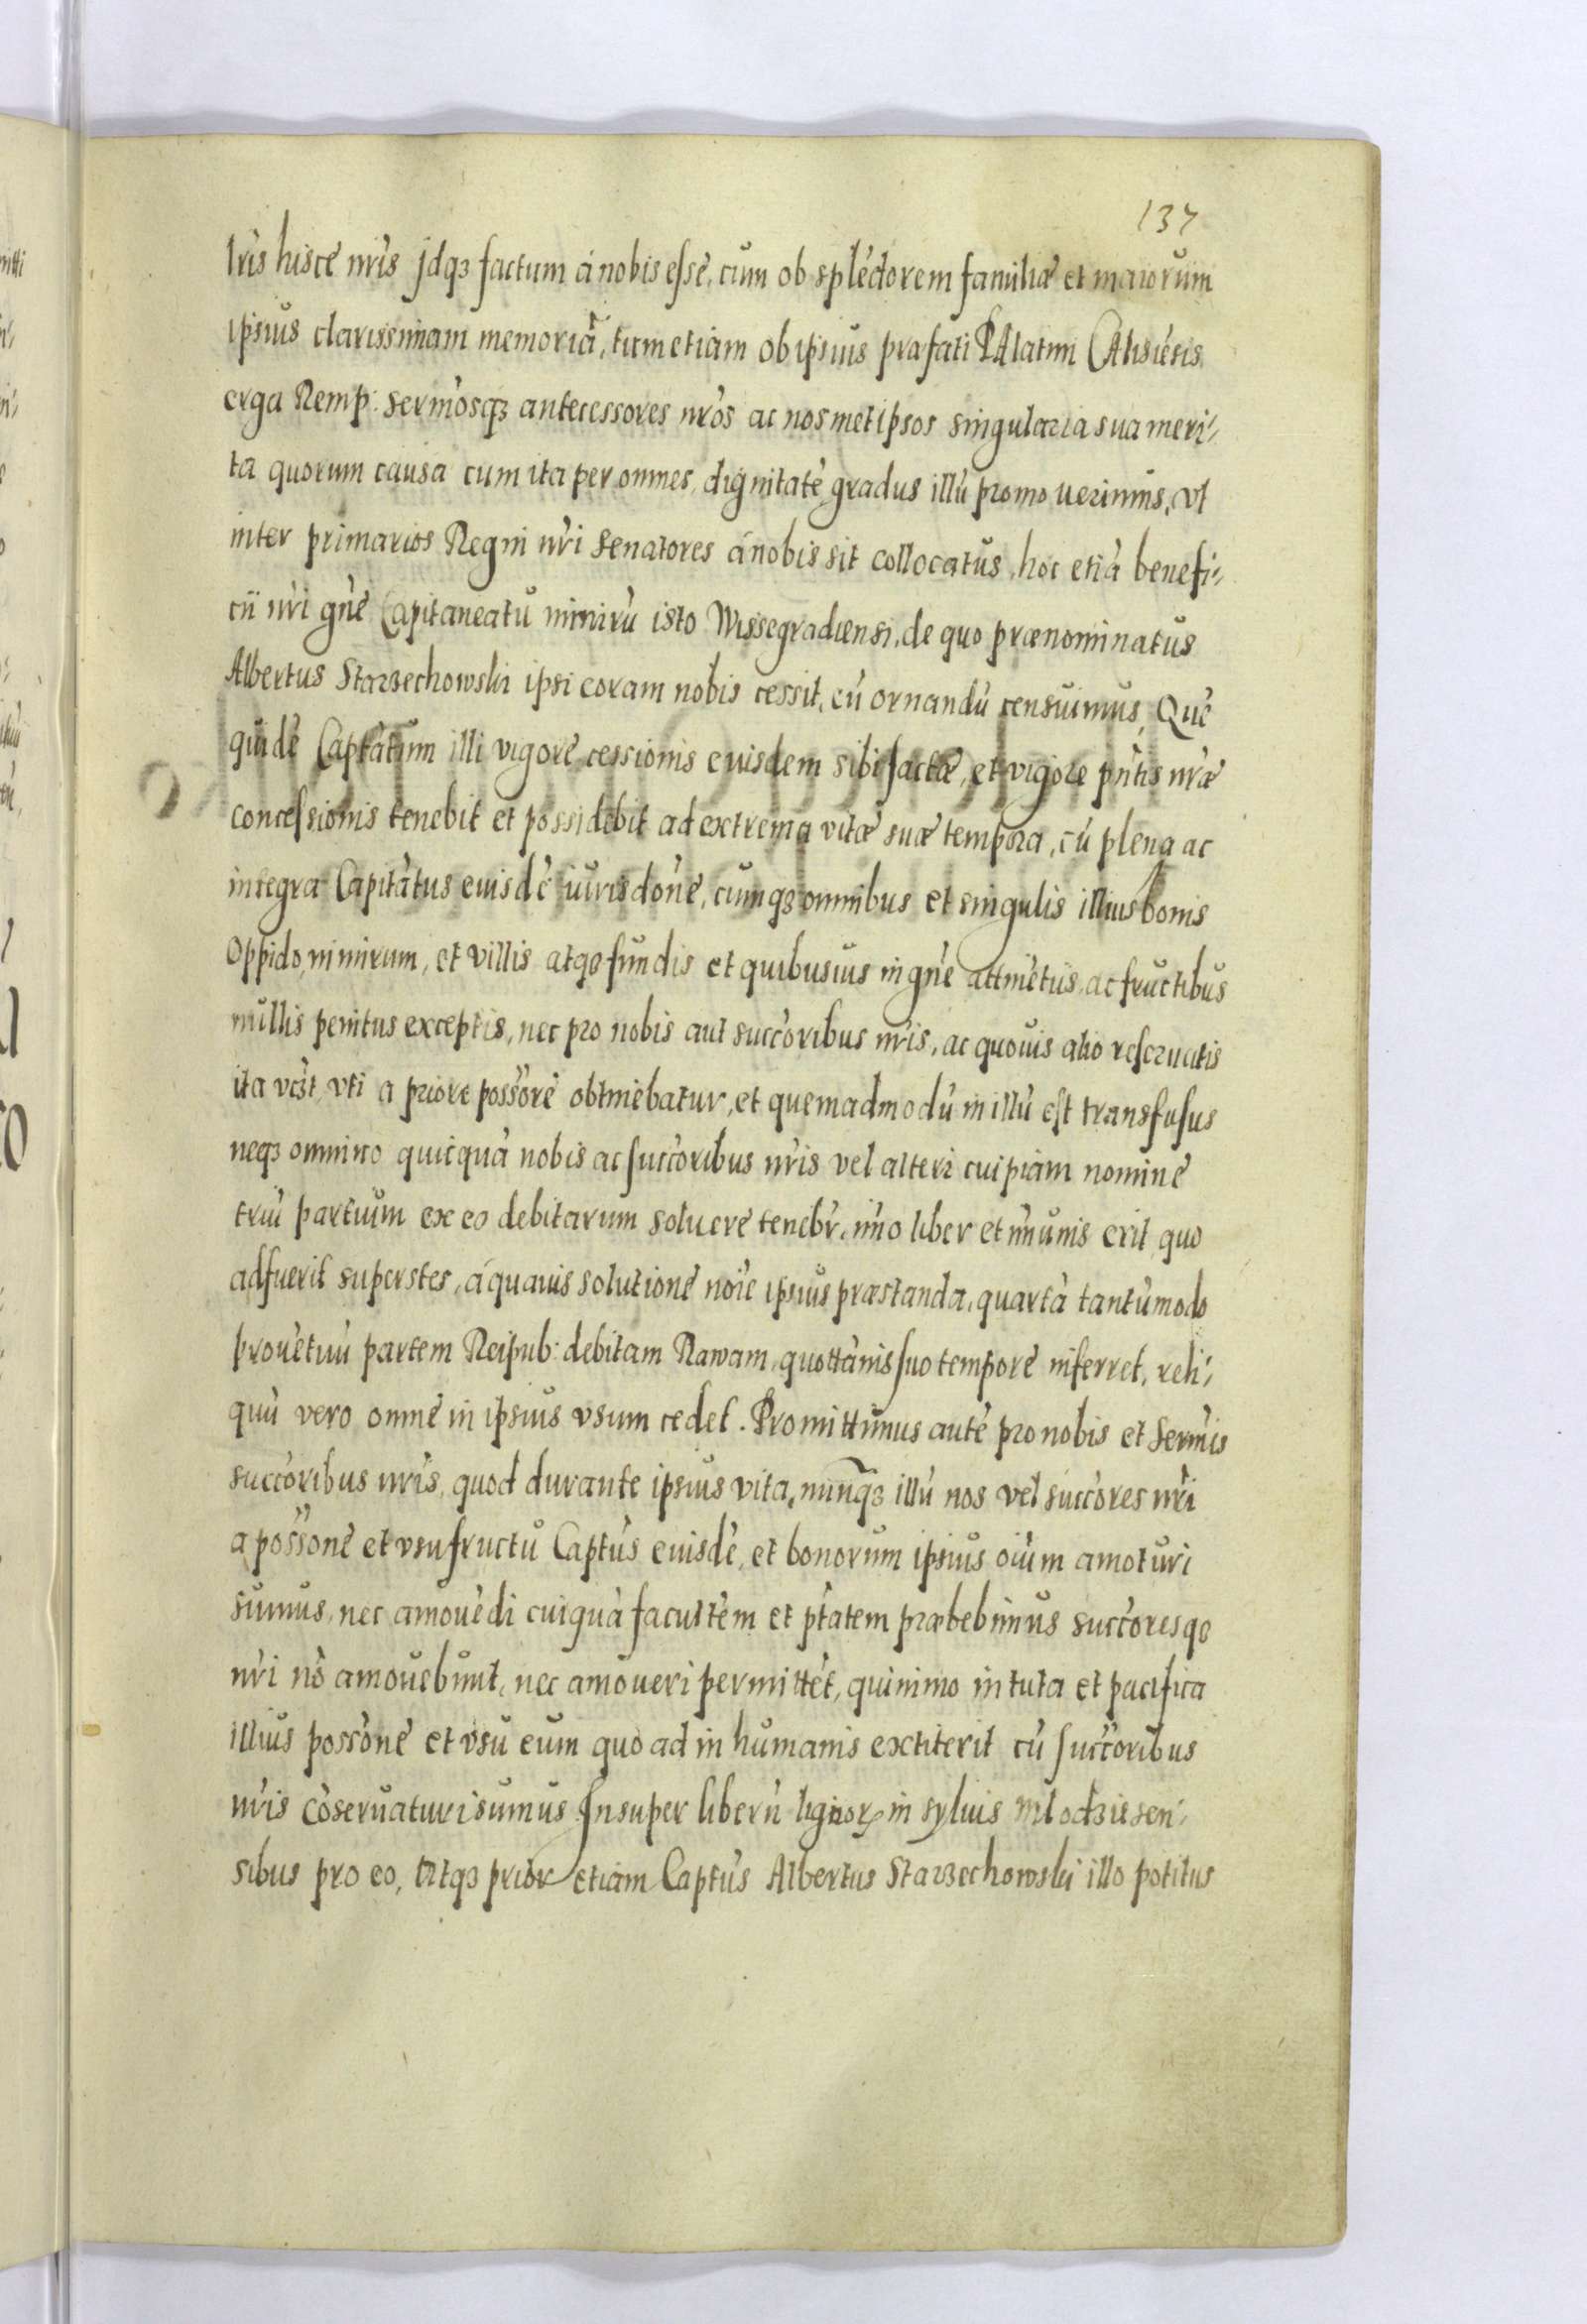 137
lris hisce nris jdqꝫ factum á nobis esse, cum ob splēdorem familiæ et maiorum
ipsius clarissimam memoriā, tum etiam ob ipsius præfati Palatini Calisiēsis
erga Remp: sermosqꝫ antecessores nros ac nosmetipsos singularia sua meri⸗
ta quorum causa cum ita per omnes, dignitatē gradus illū promouerimus, vt
inter primarios Regni nri senatores á nobis sit collocatus, hoc etiā benefi⸗
cii nri gñe Capitaneatu nimirū isto Wissegradiensi, de quo prænominatus
Albertus Starzechowski ipsi coram nobis cessit, eū ornandū censuimus, Quē
quidē Captatum illi vigore cessionis eiusdem sibi factæ, et vigore pñtis nræ
concessionis tenebit et possidebit ad extrema vitæ suæ tempora, cū plena ac
integra Capitatus eiusdē iurisdone, cumqꝫ omnibus et singulis illius bonis
Oppido nimirum, et villis atqꝫ fundis et quibusuis in gñe attinētiis, ac fructibus
nullis penitus exceptis, nec pro nobis aut succoribus nris, ac quouis alio reseruatis
ita vt, vti a priore possore obtinebatur, et quemadmodū in illū est transfusus
neqꝫ omnino quicquā nobis ac succoribus nris vel alteri cuipiam nomine
triū partium ex eo debitarum soluere tenebr, imo liber et imunis erit quo
ad fuerit superstes, á quauis solutione noie ipsius præstanda, quartā tantūmodo
prouētuū partem Reipub: debitam Rawam, quottanis suo tempore inferret, reli⸗
quū vero omne in ipsius vsum cedet. Promittimus autē pro nobis et sermis
succoribus nris, quod durante ipsius vita, nunqꝫ illū nos vel succores nri
a possone et vsufructu Captus eiusdē, et bonorum ipsius oium amoturi
sumus, nec amouēdi cuiquā facultem et ptatem præbebimus succoresqꝫ
nri nō amouebunt, nec amoueri permittēt, quinimo in tuta et pacifica
illius possone et vsu eum quo ad in humanis extiterit cū succoribus
nris cōseruaturi sumus Insuper liberū lignorꝝ in syluis Mlodzissen⸗
sibus pro eo, vtqꝫ prior etiam Captus Albertus Starzechowski illo potitus